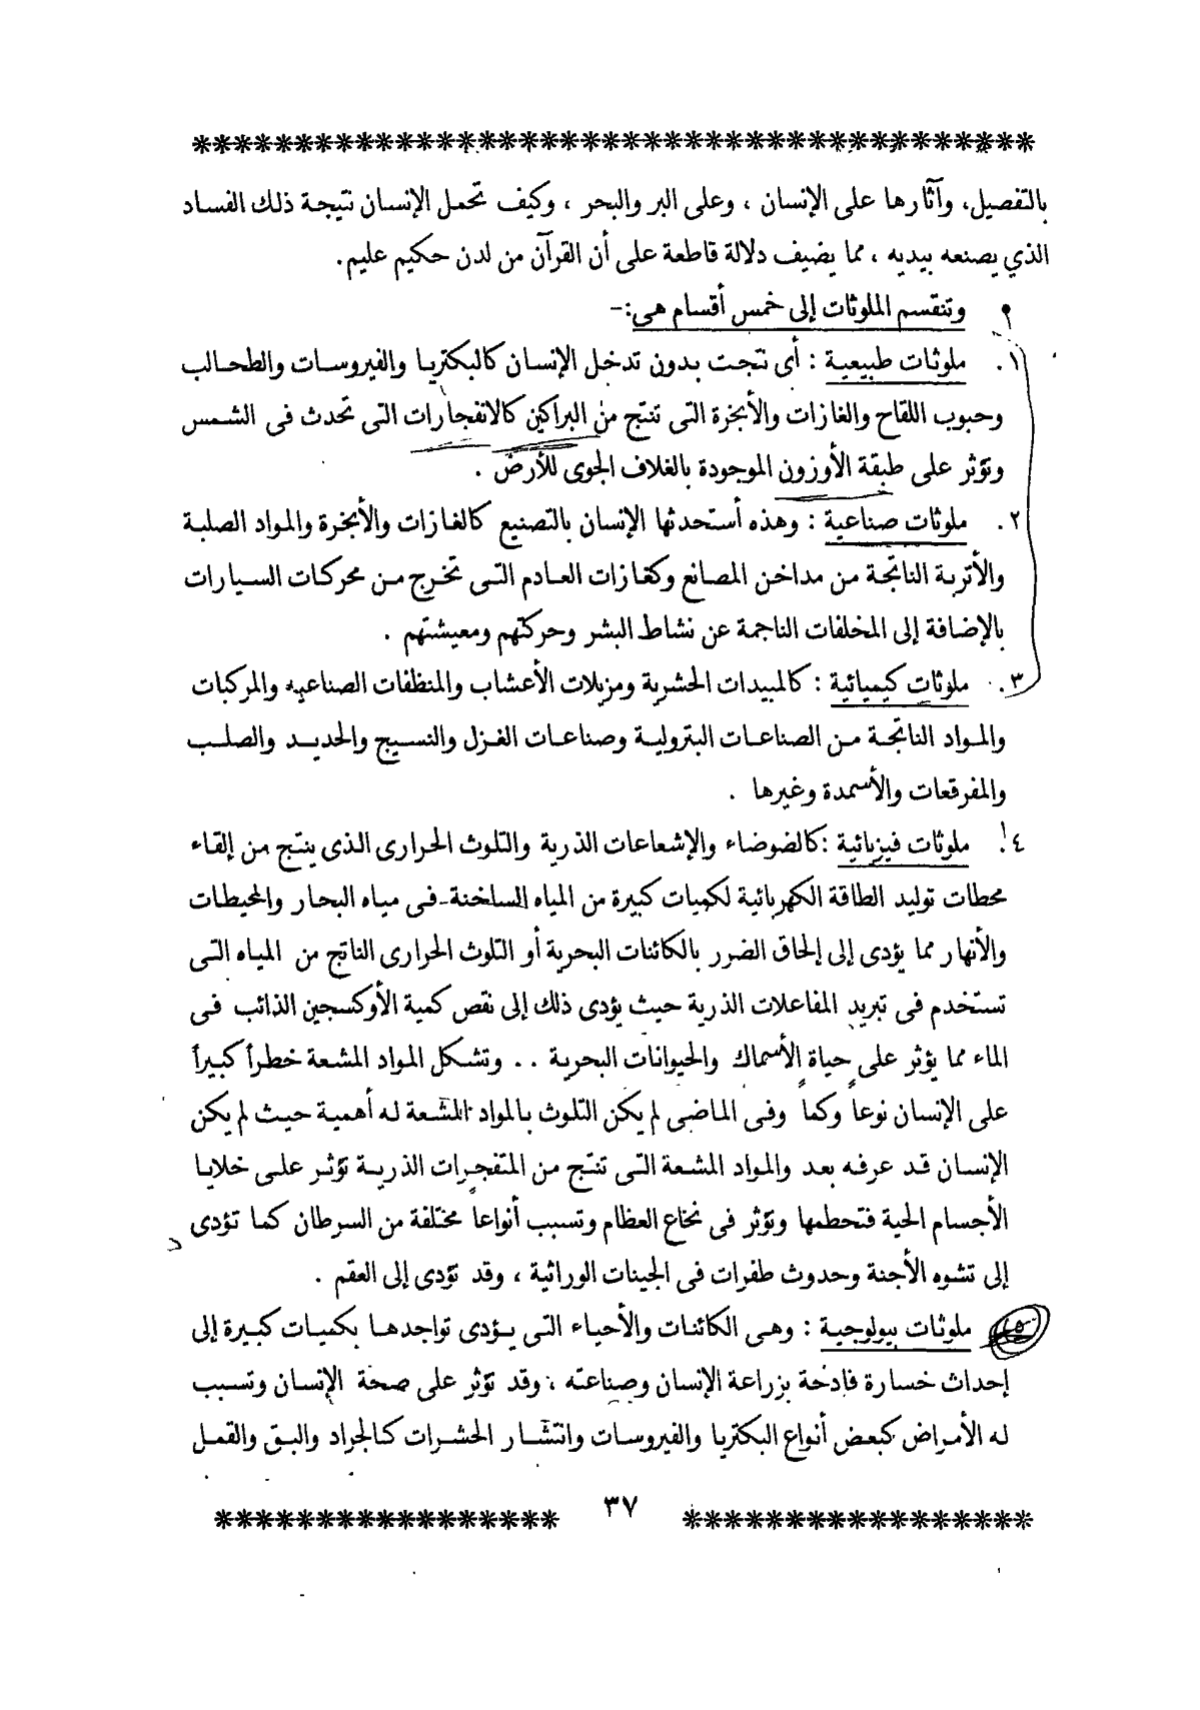 بالتفصيل، وآثارها على الإنسان ، وعلى البر والبحر ، وكيف تحمل الإنسان نتيجة ذلك الفساد
الذي يصنعه بيديه ، مما يضيف دلالة قاطعة على أن القرآن من لدن حكيم عليم.
• وتنقسم الملوثات إلى خمس أقسام هى:-
١. ملوثات طبيعية : أى نتجت بدون تدخل الإنسان كالبكتريا والفيروسات والطحالب
وحبوب اللقاح والغازات والأبخرة التى تنتج من البراكين كالانفجارات التى تحدث فى الشمس
وتؤثر على طبقة الأوزون الموجودة بالغلاف الجوى للأرض .
٢. ملوثات صناعية : وهذه أستحدثها الإنسان بالتصنيع كالغازات والأبخرة والمواد الصلبة
والأتربة الناتجة من مداخن المصانع وكغازات العادم التى تخرج من محركات السيارات
بالإضافة إلى المخلفات الناجمة عن نشاط البشر وحركتهم ومعيشتهم .
٣. ملوثات كيميائية : كالمبيدات الحشرية ومزيلات الأعشاب والمنظفات الصناعيه والمركبات
والمواد الناتجة من الصناعات البترولية وصناعات الغزل والنسيج والحديد والصلب
والمفرقعات والأسمدة وغيرها .
٤. ملوثات فيزيائية :كالضوضاء والإشعاعات الذرية والتلوث الحرارى الذى ينتج من إلقاء
محطات توليد الطاقة الكهربائية لكميات كبيرة من المياه الساخنة فى مياه البحار والمحيطات
والأنهار مما يؤدى إلى إلحاق الضرر بالكائنات البحرية أو التلوث الحرارى الناتج من المياه التى
تستخدم فى تبريد المفاعلات الذرية حيث يؤدى ذلك إلى نقص كمية الأوكسجين الذائب فى
الماء مما يؤثر على حياة الأسماك والحيوانات البحرية .. وتشكل المواد المشعة خطراً كبيراً
على الإنسان نوعاً وكماً وفى الماضى لم يكن التلوث بالمواد المشعة له أهمية حيث لم يكن
الإنسان قد عرفه بعد والمواد المشعة التى تنتج من المتفجرات الذرية تؤثر على خلايا
الأجسام الحية فتحطمها وتؤثر فى نخاع العظام وتسبب أنواعاً مختلفة من السرطان كما تؤدى
إلى تشوه الأجنة وحدوث طفرات فى الجينات الوراثية ، وقد تؤدى إلى العقم .
٥. ملوثات بيولوجية : وهى الكائنات والأحياء التى يؤدى تواجدها بكميات كبيرة إلى
إحداث خسارة فادحة بزراعة الإنسان وصناعته ، وقد تؤثر على صحة الإنسان وتسبب
له الأمراض كبعض أنواع البكتريا والفيروسات وانتشار الحشرات كالجراد والبق والقمل
٣٧